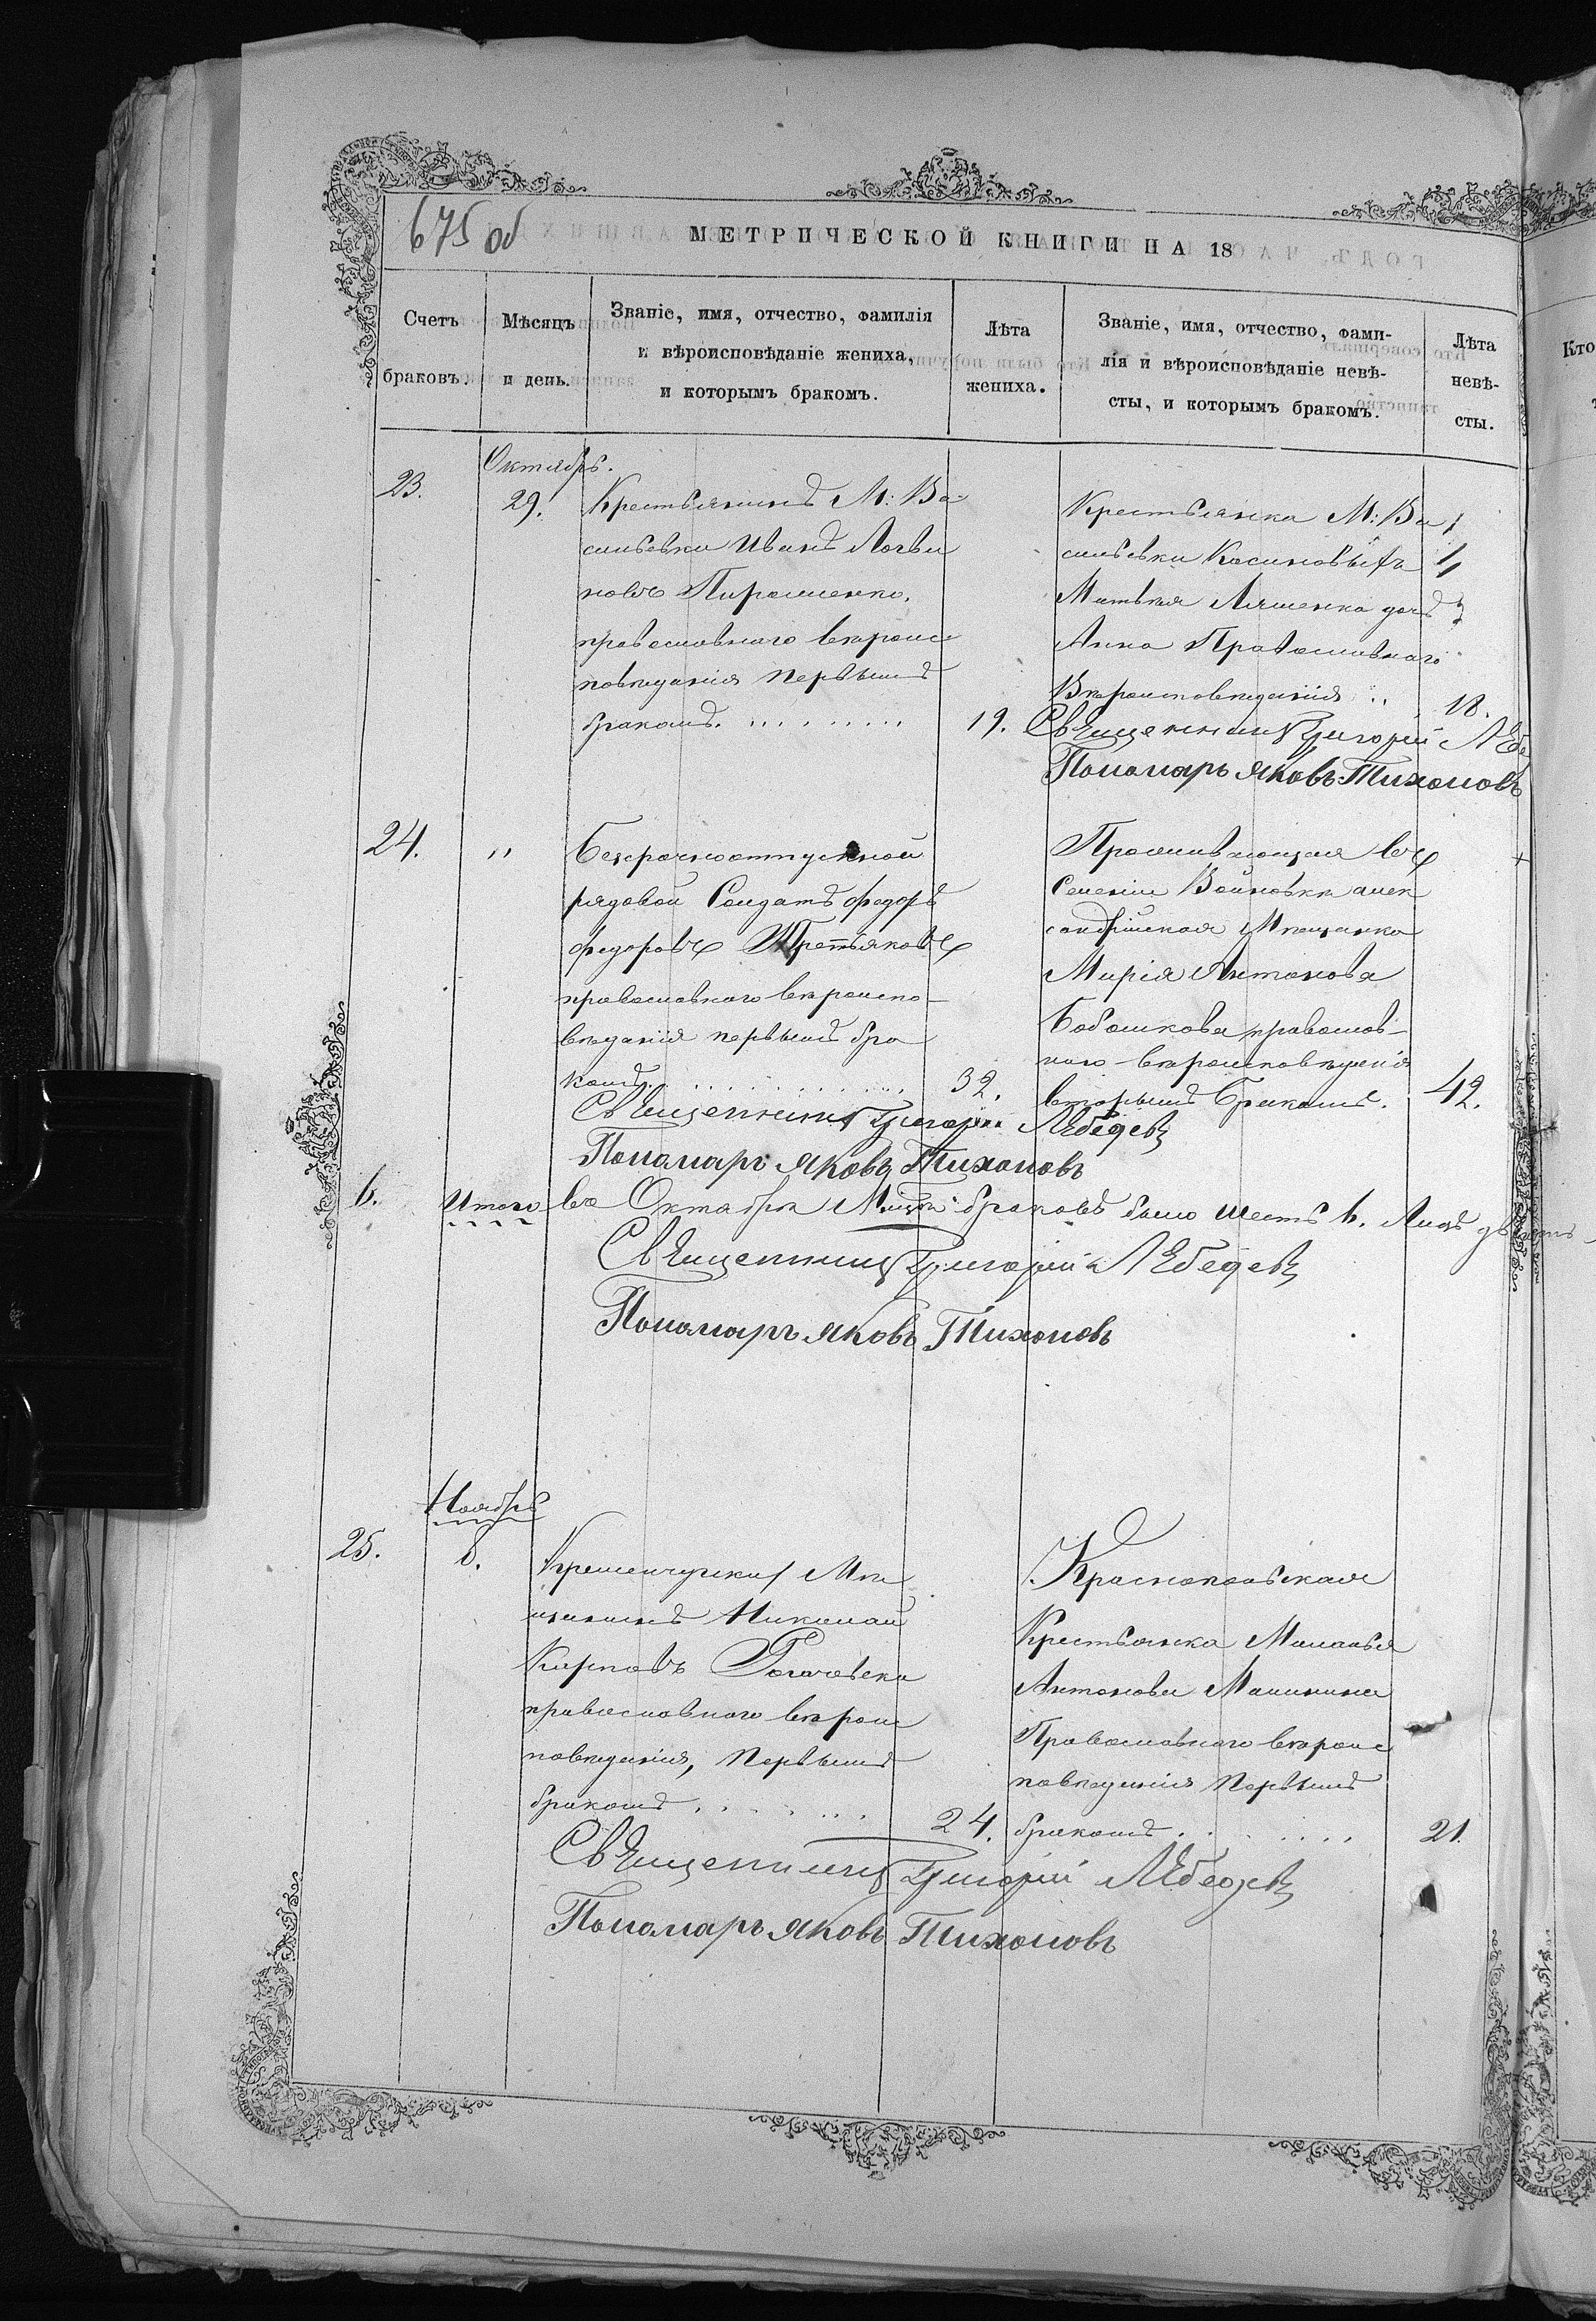 675 об
МЕТРИЧЕСКОЙ КНИГИ НА 18
Счетъ браковъ.
Мѣсяцъ и день.
Званіе, имя, отчество, фамилія
и вѣроисповѣданіе жениха,
и которымъ бракомъ.
Лѣта
жениха.
Званіе, имя, отчество, фами-
лія и вѣроисповѣданіе невѣ-
сты, и которымъ бракомъ.
Лѣта
невѣ-
сты.
Кто
Октябрь.
23.
29.
Крестьянинъ М: Ва
сильевки Иванъ Логви
новъ
православнаго вѣроис
повѣданія первымъ
бракомъ.
19.
Крестьянка М: Ва
сильевки
Ляшенка дочь
Анна Православнаго
Вѣроисповѣданія
18.
Священникъ Григорій Лебе
Пономарь Яковъ Тихоновъ
24.
"
Безсрочноотпускной
рядовой Солдатъ Федоръ
Федоровъ Третьяковъ
православнаго вѣроиспо-
вѣданія первымъ бра
комъ.
32.
Проживающая въ
Селеніи Войновкѣ алек
сандрійская Мѣщанка
Марія Антонова
Бобошкова православ-
наго вѣроисповѣданія
вторымъ бракомъ.
42.
Священникъ Григорій Лебедевъ
Пономарь Яковъ Тихоновъ
6.
Итого въ Октябрѣ М-цѣ браковъ было шесть 6. Лицъ
Священникъ Григорій Лебедевъ
Пономарь Яковъ Тихоновъ
Ноябрь
25.
8.
Кременчугскій Мѣ
щанинъ Николай
Карповъ
православнаго вѣроис
повѣданія, первымъ
бракомъ
24.
Краснопольская
Крестьянка Маланья
Антонова Машкина
Православнаго вѣроис
повѣданія первымъ
бракомъ
21.
Священникъ Григорій Лебедевъ
Пономарь Яковъ Тихоновъ